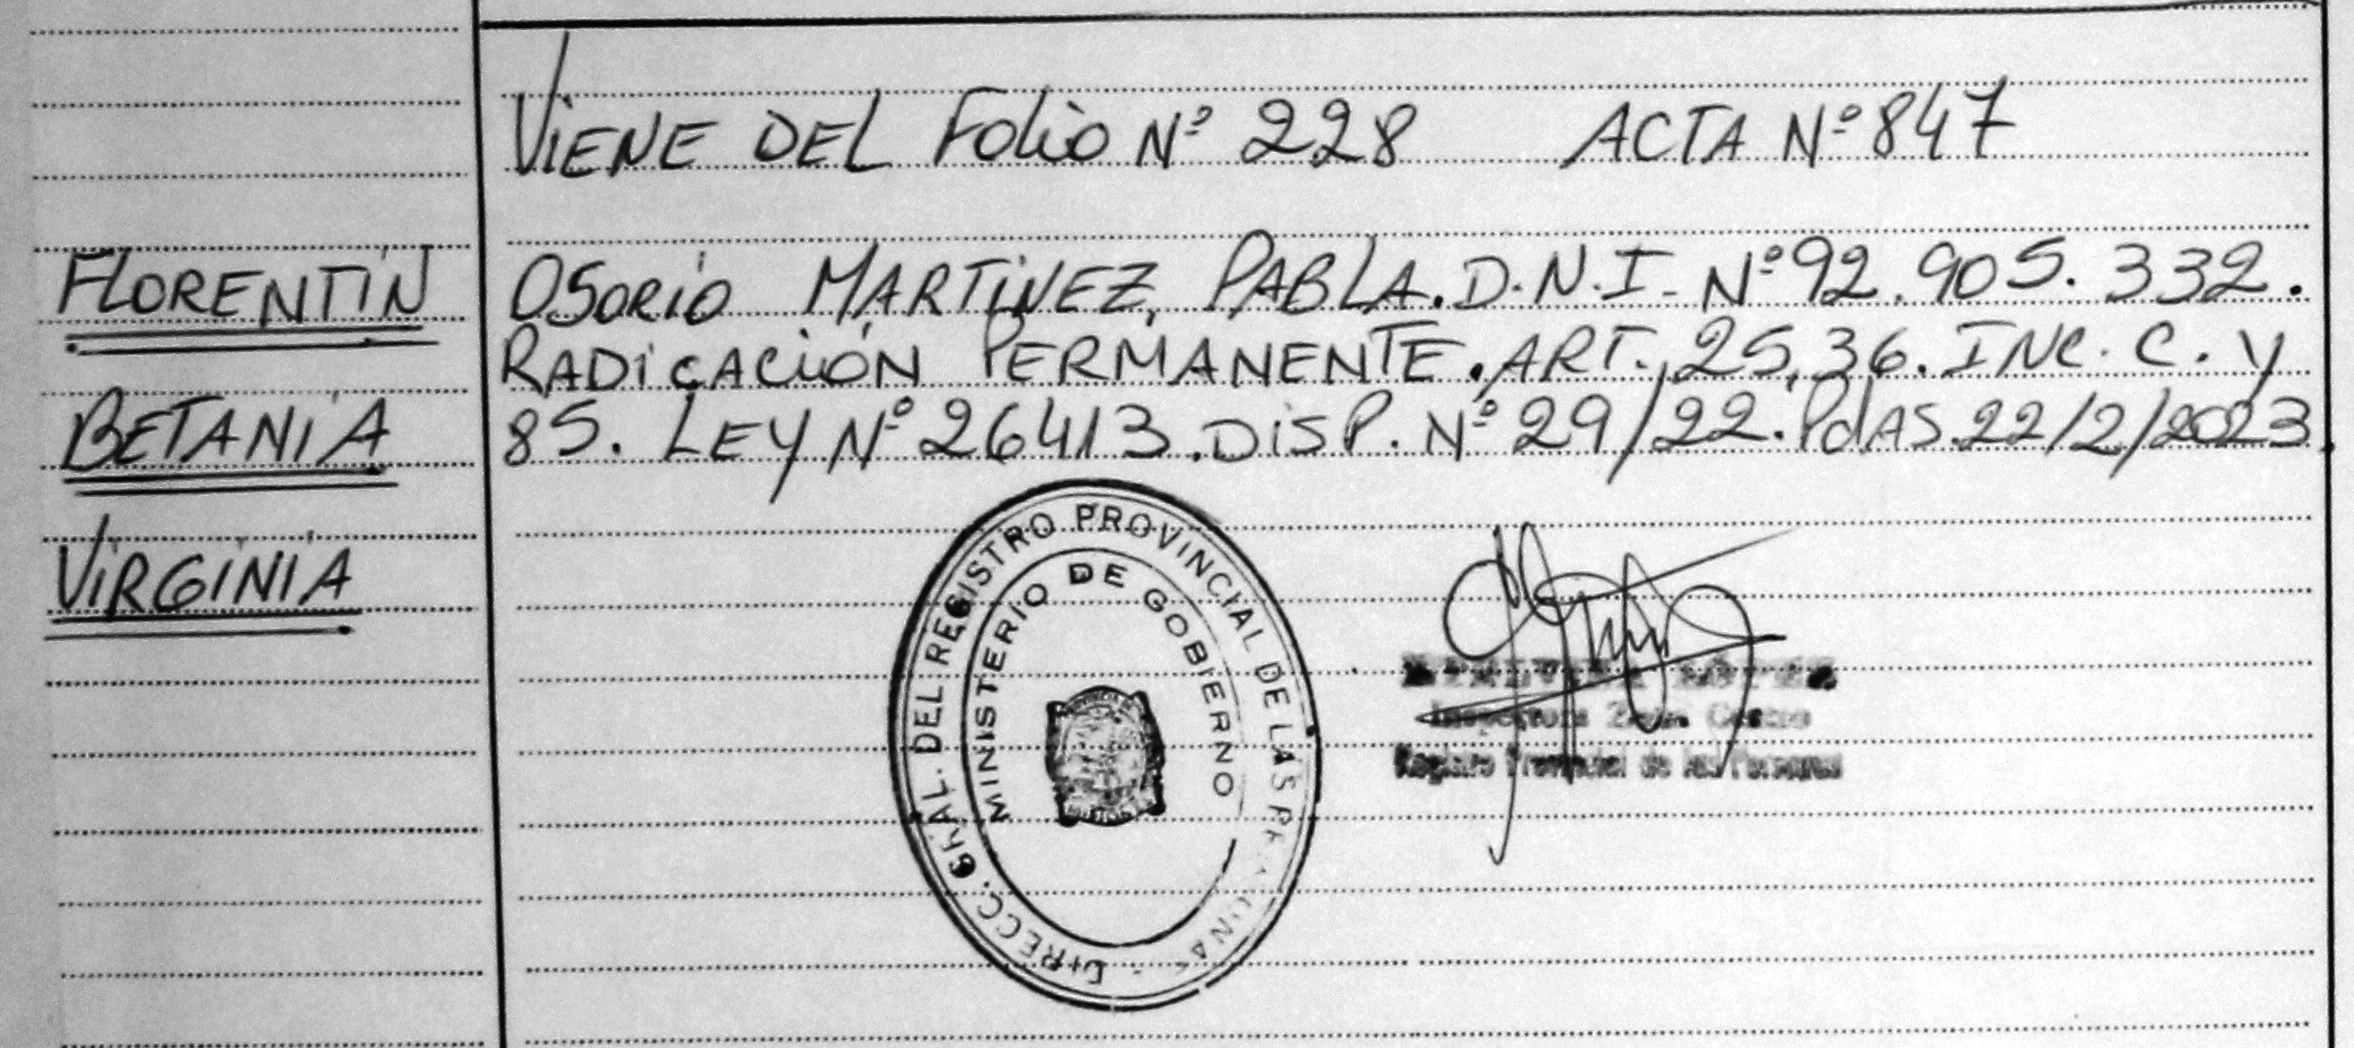 VIENE DEL FOLIO Nº 228 ACTA Nº 847
FLORENTÍN
BETANIA
VIRGINIA
OSORIO MARTÍNEZ, PABLA. D.N.I. Nº 92.905.332.
RADICACIÓN PERMANENTE. ART. 25, 36. INC. C. Y
85. LEY Nº 26413. DISP. Nº 29/22. PdAS. 22/2/2023
DIRECC. GRAL. DEL REGISTRO PROVINCIAL DE LAS PERSONAS
MINISTERIO DE GOBIERNO
Inspectora Zona Centro
Registro Provincial de las Personas